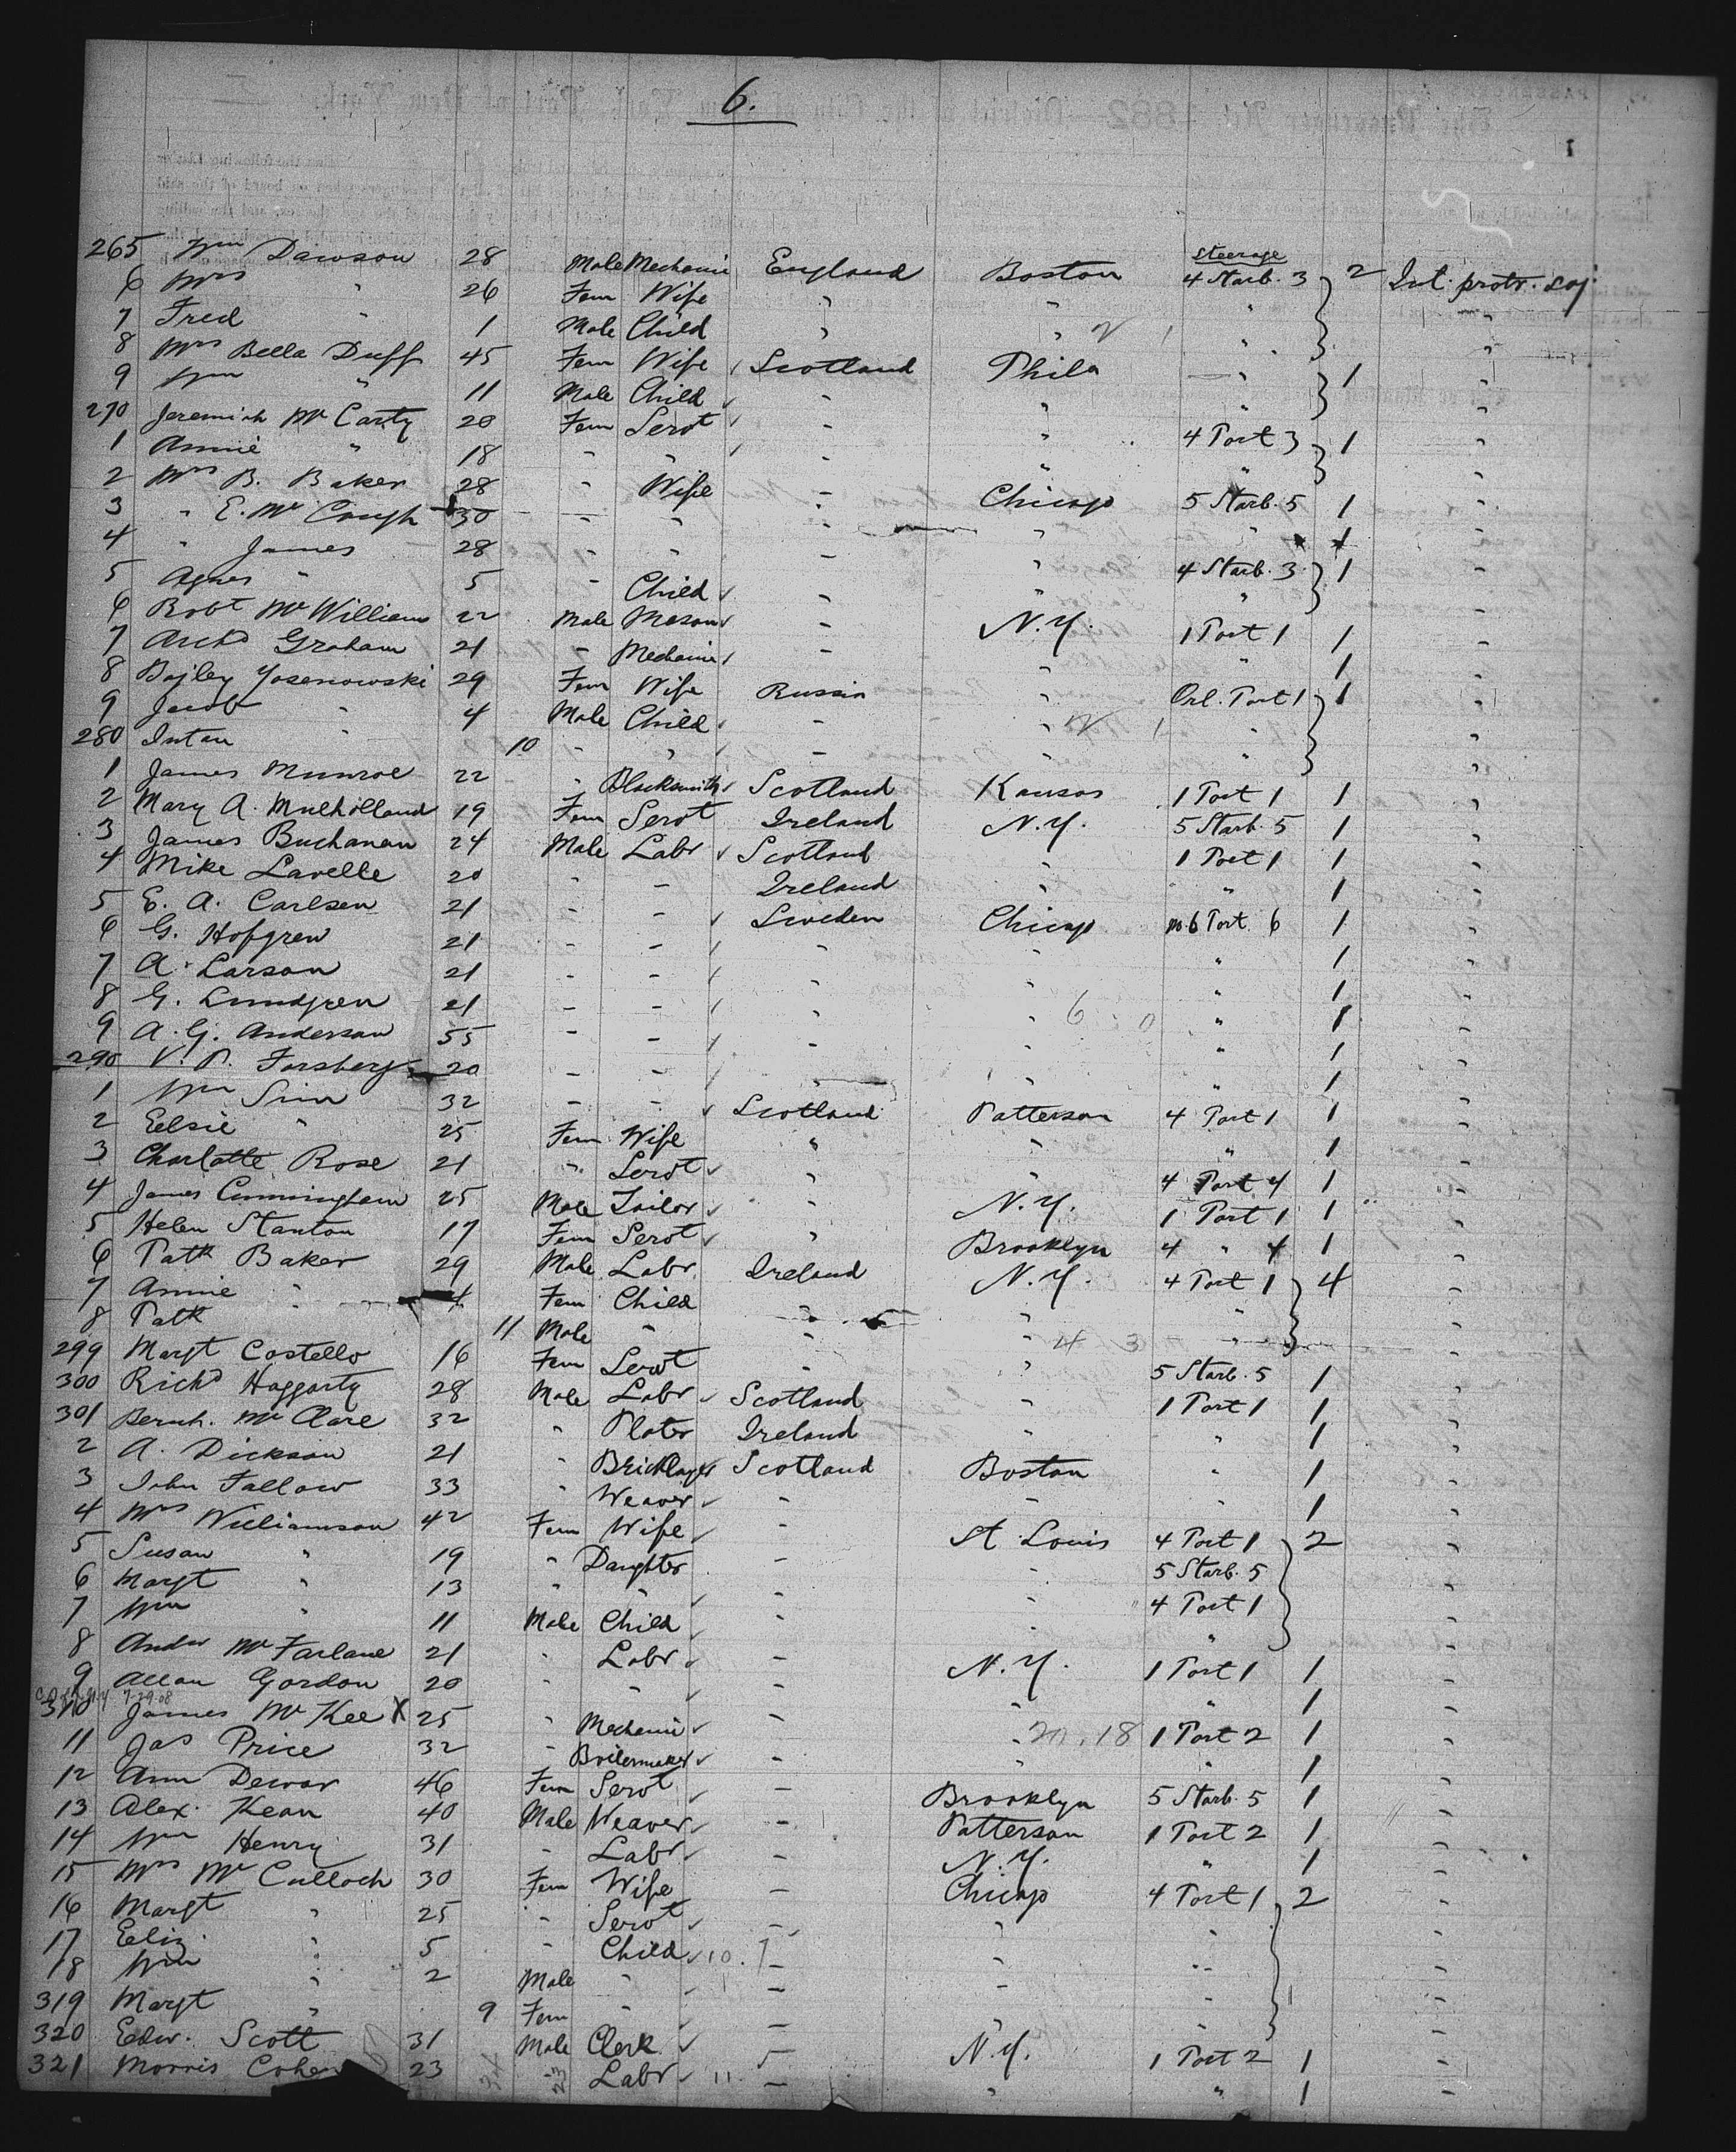 6.
Steerage
265 Wm Dawson 28 Male Mechanic England Boston 4 Starb. 3 2 Int. protr. soj
6 Mrs " 26 Fem Wife " " "
7 Fred " 1 Male Child " " " "
8 Mrs Bella Duff 45 Fem Wife Scotland Phila " 1 "
9 Wm " 11 Male Child " " " "
270 Jeremiah McCarty 28 Fem Servt " " 4 Port 3 1 "
1 Annie " 18 " " " " " "
2 Mrs B. Baker 28 " Wife " Chicago 5 Starb. 5 1 "
3 " E. McCough 30 " " " " " 1 "
4 " James 28 " " " " 4 Starb. 3 1 "
5 Agnes " 5 " Child " " " "
6 Robt McWilliams 22 Male Mason " N.Y. 1 Port 1 1 "
7 Archd Graham 21 " Mechanic " " " 1 "
8 Bajley Yosenowski 29 Fem Wife Russia " Orl. Port 1 1 "
9 Jacob " 4 Male Child " " " "
280 Intan " 10 " " " " " "
1 James Munroe 22 " Blacksmith Scotland Kansas 1 Port 1 1 "
2 Mary A. Mulholland 19 Fem Servt Ireland N.Y. 5 Starb. 5 1 "
3 James Buchanan 24 Male Labr Scotland " 1 Port 1 1 "
4 Mike Lavelle 20 " " Ireland " " 1 "
5 E. A. Carlsen 21 " " Sweden Chicago No. 6 Port 6 1 "
6 G. Hofgren 21 " " " " " 1 "
7 A. Larson 21 " " " " " 1 "
8 G. Lundgren 21 " " " " 6 0 " 1 "
9 A. G. Anderson 55 " " " " " 1 "
290 V. P. Forsberg 20 " " " " " 1 "
1 Wm Sim 32 " " Scotland Patterson 4 Port 1 1 "
2 Eelsie " 25 Fem Wife " " " 1 "
3 Charlotte Rose 21 " Servt " " 4 Port 4 1 "
4 James Cunningham 25 Male Tailor " N.Y. 1 Port 1 1 "
5 Helen Stanton 17 Fem Servt " Brooklyn 4 " 4 1 "
6 Patk Baker 29 Male Labr Ireland N.Y. 4 Port 1 4 "
7 Annie " 4 Fem Child " " " "
8 Patk 11 Male " " " 4 3 " "
299 Margt Costello 16 Fem Servt " " 5 Starb. 5 1 "
300 Richd Haggarty 28 Male Labr Scotland " 1 Port 1 1 "
301 Bernh. McClare 32 " Plater Ireland " " 1 "
2 A. Dickson 21 " Bricklayer Scotland Boston " 1 "
3 John Fallow 33 " Weaver " " " 1 "
4 Mrs Williamson 42 Fem Wife " St Louis 4 Port 1 2 "
5 Susan " 19 " Daughter " " 5 Starb. 5 "
6 Margt " 13 " " " " 4 Port 1 "
7 Wm " 11 Male Child " " " "
8 Andw McFarlane 21 " Labr " N.Y. 1 Port 1 1 "
9 Allan Gordon 20 " " " " " 1 "
7-29-08
310 James McKee X 25 " Mechanic " " 20. 18 1 Port 2 1 "
11 Jas Price 32 " Boilermaker " " " 1 "
12 Ann Dewar 46 Fem Servt " Brooklyn 5 Starb. 5 1 "
13 Alex. Kean 40 Male Weaver " Patterson 1 Port 2 1 "
14 Wm Henry 31 " Labr " N.Y. " 1 "
15 Mrs McCulloch 30 Fem Wife " Chicago 4 Port 1 2 "
16 Margt " 25 " Servt " " " "
17 Eeliz. " 5 " Child 10. 7 " " " "
18 Wm " 2 Male " " " " "
319 Margt " 9 Fem " " " " "
320 Edw. Scott 31 Male Clerk " N.Y. 1 Port 2 1 "
321 Morris Cohen 23 " Labr 11. " " " 1 "